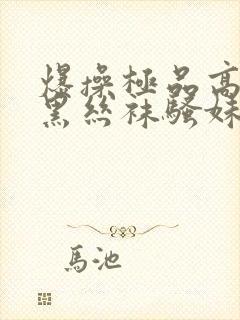 爆操極品高
黑絲袜騷妹
馬池